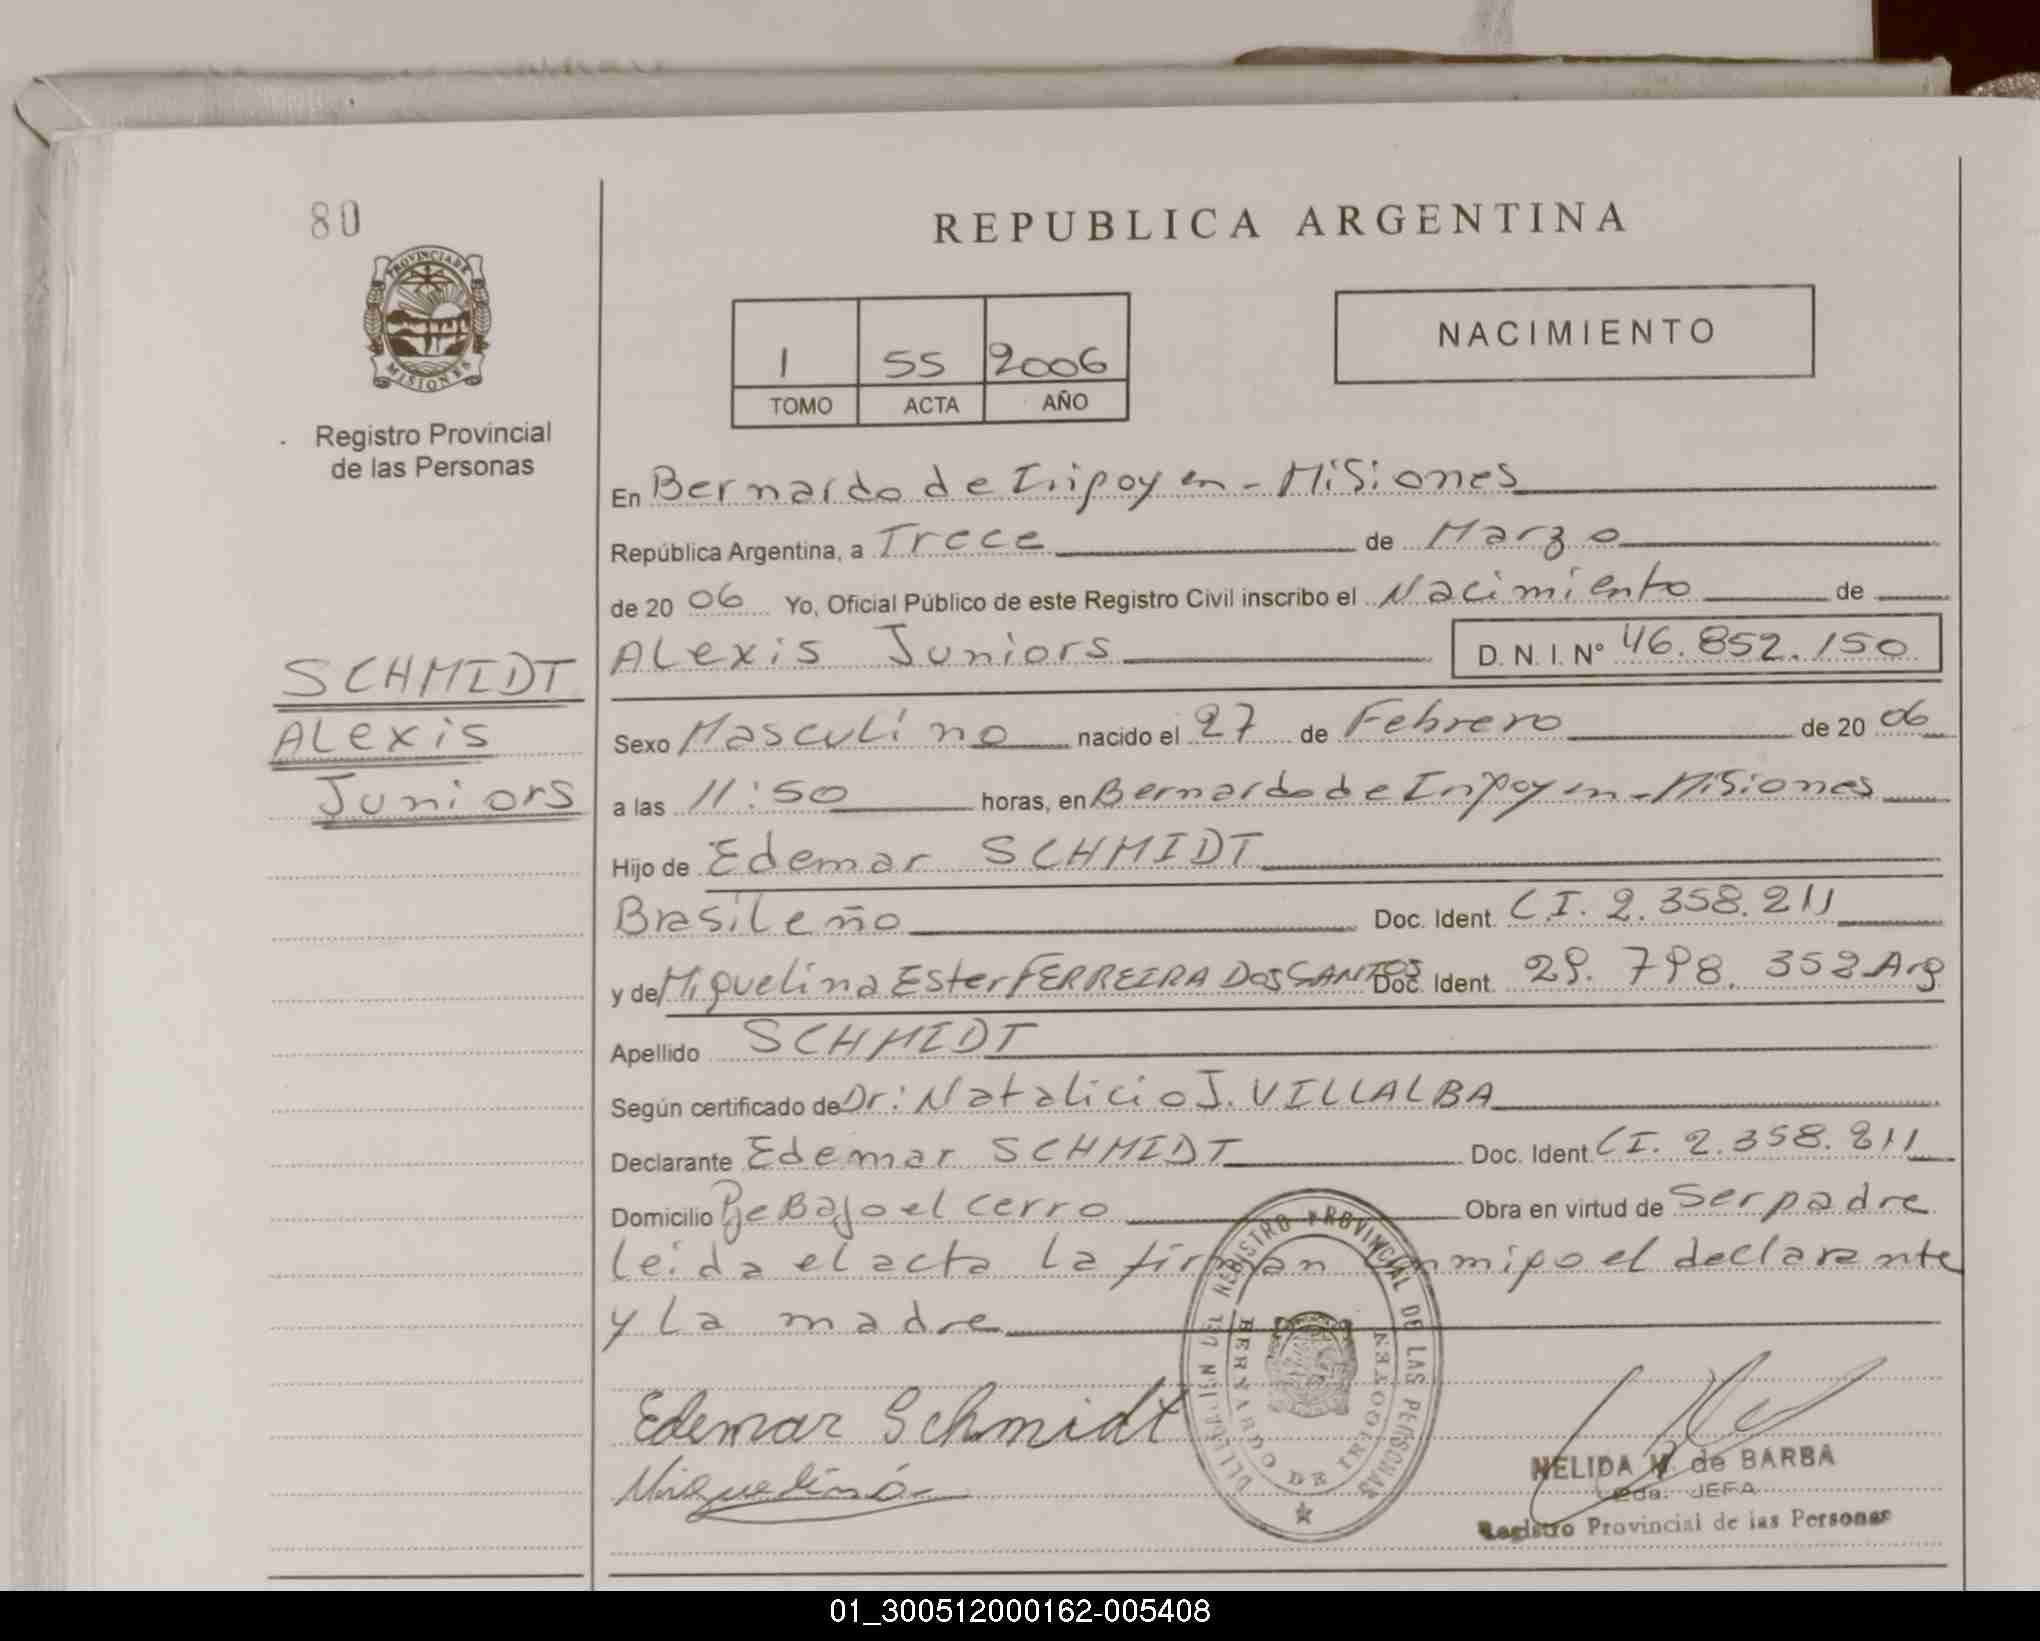 80
PROVINCIA DE
MISIONES
Registro Provincial
de las Personas
SCHMIDT
Alexis
Juniors
REPUBLICA ARGENTINA
1 55 2006
TOMO ACTA AÑO
NACIMIENTO
En Bernardo de Iripoyen - Misiones
República Argentina, a Trece de Marzo
de 20 06 Yo, Oficial Público de este Registro Civil inscribo el Nacimiento de
Alexis Juniors D. N. I. N° 46.852.150
Sexo Masculino nacido el 27 de Febrero de 20 06
a las 11:50 horas, en Bernardo de Iripoyen - Misiones
Hijo de Edemar SCHMIDT
Brasileño Doc. Ident. C.I. 2.358.211
y de Miguelina Ester FERREIRA DOS SANTOS Doc. Ident. 29.798.352 Arg
Apellido SCHMIDT
Según certificado de Dr: Natalicio J. VILLALBA
Declarante Edemar SCHMIDT Doc. Ident. CI. 2.358.211
Domicilio Pje Bajo el cerro Obra en virtud de Ser padre
leida el acta la firman conmigo el declarante
y la madre
Edemar Schmidt
Miguelina
DELEGACIÓN DEL REGISTRO PROVINCIAL DE LAS PERSONAS
BERNARDO DE IRIGOYEN
NELIDA M. de BARBA
JEFA
Registro Provincial de las Personas
01_300512000162-005408